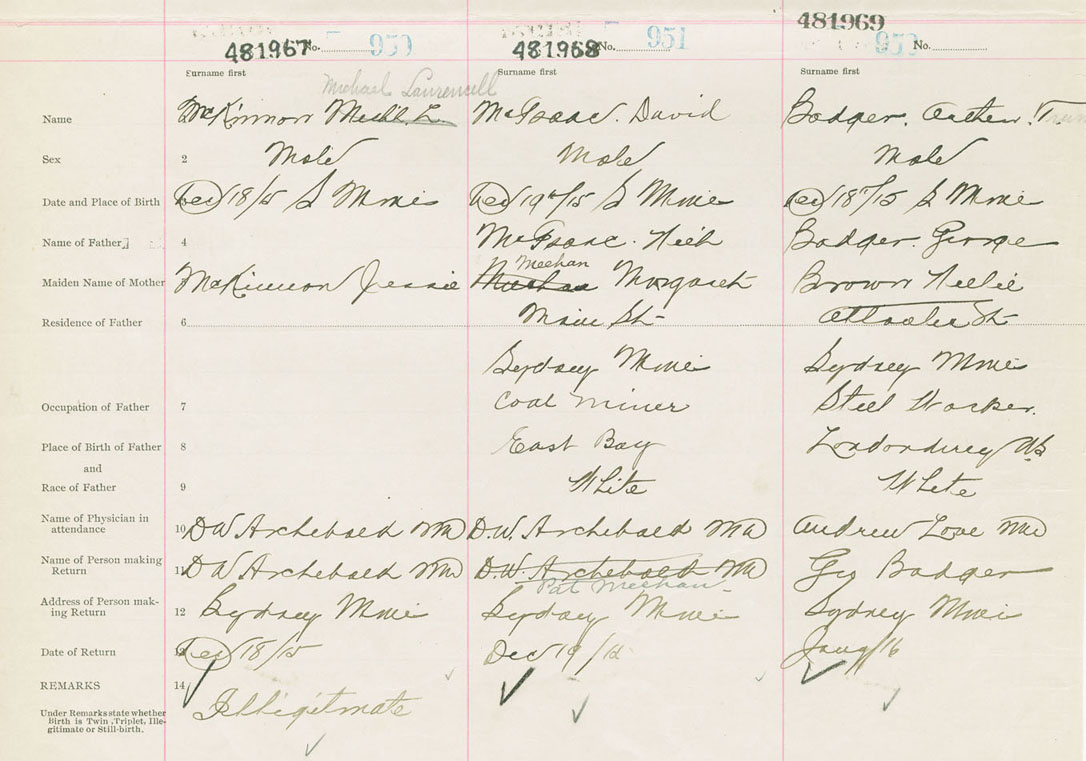 481967 No. 950 481968 No. 951 481969 No.
Surname first Surname first Surname first
Michael Laurencell
Name McKinnon Mich'l. L. McIsaac. David Badger. Arthur.
Sex 2 Male Male Male
Date and Place of Birth Dec 18/15 S Mines Dec 19th/15 S Mines Dec 18th/15 S Mines
Name of Father 4 McIsaac. Neil Badger. George
Meehan
Maiden Name of Mother McKinnon Jessie Margaret Brown Nellie
Residence of Father 6 Main St St
Sydney Mines Sydney Mines
Occupation of Father 7 Coal Miner Steel Worker.
Place of Birth of Father 8 East Bay Londonderry NS
and
Race of Father 9 White White
Name of Physician in
attendance 10 DW Archibald MD D.W. Archibald MD Andrew Love MD
Name of Person making
Return 11 DW Archibald MD D.W. Archibald MD Geo Badger
Pat Meehan
Address of Person mak-
ing Return 12 Sydney Mines Sydney Mines Sydney Mines
Date of Return 13 Dec 18/15 Dec 19/15
REMARKS 14
Under Remarks state whether
Birth is Twin, Triplet, Ille-
gitimate or Still-birth.
Illigitmate